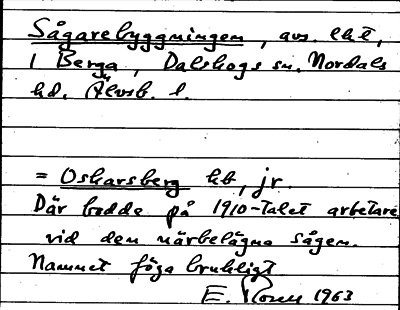 Sågarebyggningen, avs. lht,
i Berga, Dalskogs sn. Nordals
hd. Älvsb. l.
= Oskarsberg hb, jr.
Där bodde på 1910-talet arbetare
vid den närbelägna sågen.
Namnet föga brukligt.
E. Rosen 1963